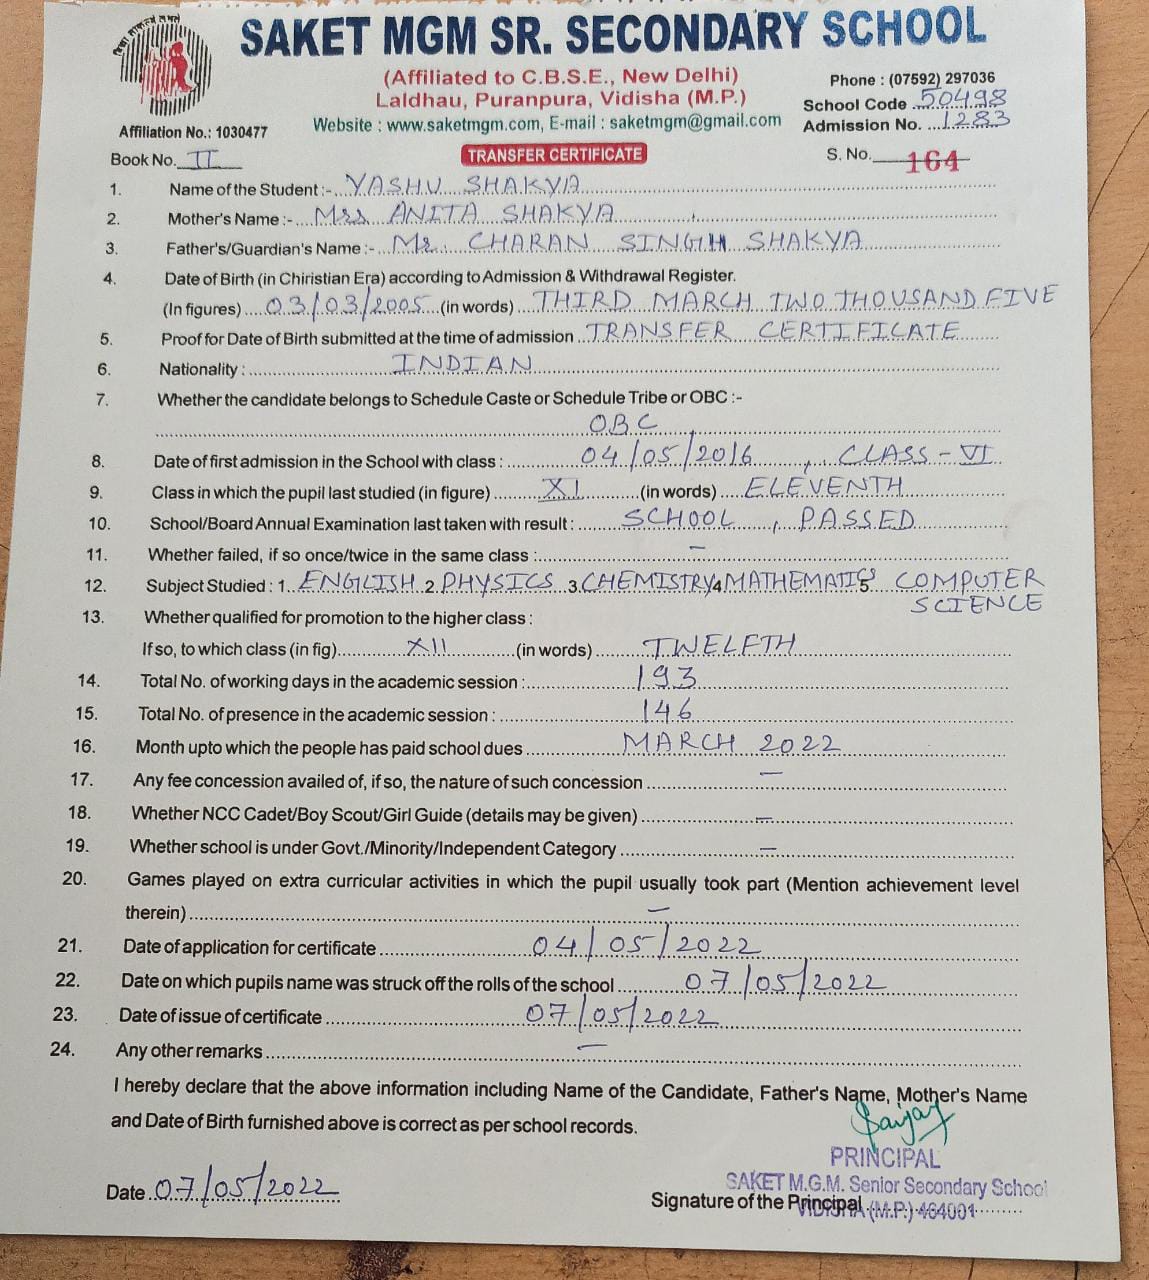 SAKET MGM SR. SECONDARY SCHOOL
(Affiliated to C.B.S.E., New Delhi)
Laldhau, Puranpura, Vidisha (M.P.)
Website : www.saketmgm.com, E-mail : saketmgm@gmail.com
Phone : (07592) 297036
School Code 50498
Admission No. 1283
Affiliation No.: 1030477
Book No. II
TRANSFER CERTIFICATE
S. No. 164
1. Name of the Student :- YASHU SHAKYA
2. Mother's Name :- Mrs ANITA SHAKYA
3. Father's/Guardian's Name :- Mr. CHARAN SINGH SHAKYA
4. Date of Birth (in Chiristian Era) according to Admission & Withdrawal Register.
(In figures) 03/03/2005 (in words) THIRD MARCH TWO THOUSAND FIVE
5. Proof for Date of Birth submitted at the time of admission TRANSFER CERTIFICATE
6. Nationality : INDIAN
7. Whether the candidate belongs to Schedule Caste or Schedule Tribe or OBC :-
OBC
8. Date of first admission in the School with class : 04/05/2016, CLASS - VI
9. Class in which the pupil last studied (in figure) XI (in words) ELEVENTH
10. School/Board Annual Examination last taken with result : SCHOOL, PASSED
11. Whether failed, if so once/twice in the same class : –
12. Subject Studied : 1. ENGLISH 2 PHYSICS 3 CHEMISTRY 4 MATHEMATICS 5 COMPUTER
SCIENCE
13. Whether qualified for promotion to the higher class :
If so, to which class (in fig) XII (in words) TWELFTH
14. Total No. of working days in the academic session : 193
15. Total No. of presence in the academic session : 146
16. Month upto which the people has paid school dues MARCH 2022
17. Any fee concession availed of, if so, the nature of such concession –
18. Whether NCC Cadet/Boy Scout/Girl Guide (details may be given) –
19. Whether school is under Govt./Minority/Independent Category –
20. Games played on extra curricular activities in which the pupil usually took part (Mention achievement level
therein) –
21. Date of application for certificate 04/05/2022
22. Date on which pupils name was struck off the rolls of the school 07/05/2022
23. Date of issue of certificate 07/05/2022
24. Any other remarks –
I hereby declare that the above information including Name of the Candidate, Father's Name, Mother's Name
and Date of Birth furnished above is correct as per school records.
PRINCIPAL
SAKET M.G.M. Senior Secondary School
VIDISHA (M.P.) 464001
Date 07/05/2022
Signature of the Principal